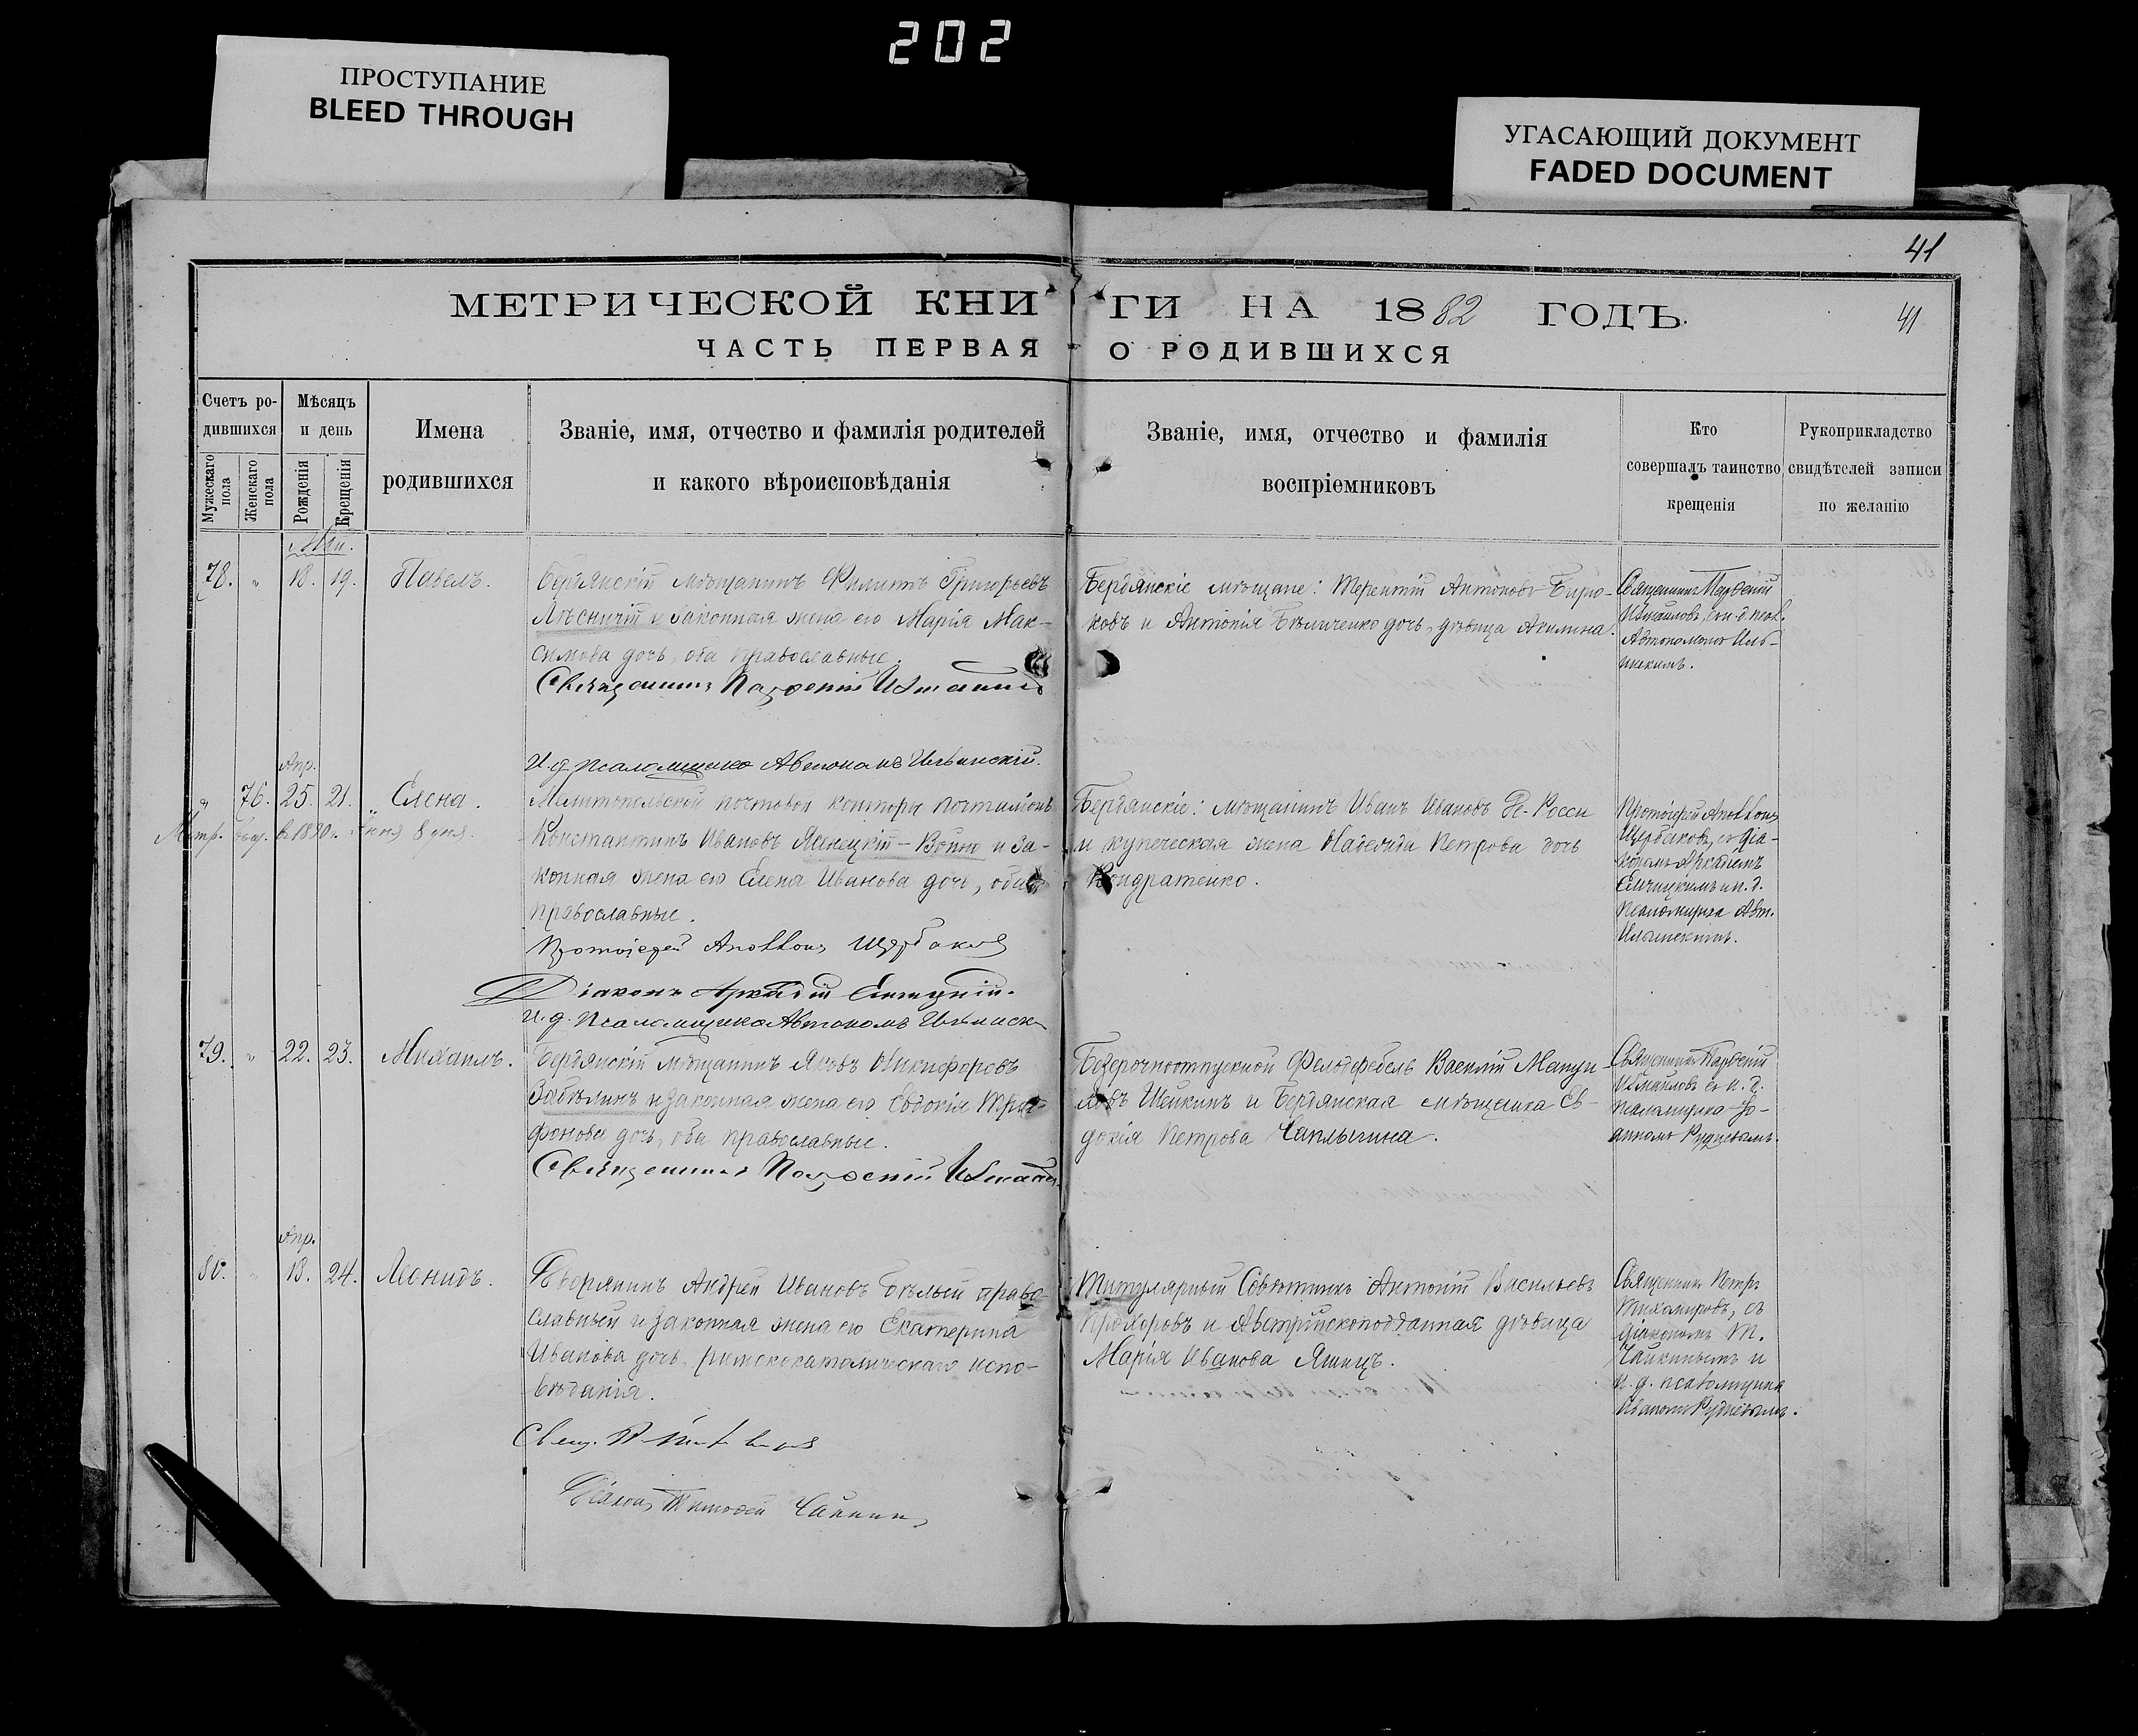 202
ПРОСТУПАНИЕ
BLEED THROUGH
УГАСАЮЩИЙ ДОКУМЕНТ
FADED DOCUMENT
41
МЕТРИЧЕСКОЙ КНИГИ НА 1882 ГОДЪ.
41
ЧАСТЬ ПЕРВАЯ О РОДИВШИХСЯ
Счетъ ро-
дившихся
Мужескаго пола
Женскаго пола
Мѣсяцъ
и день
Рожденія
Крещенія
Имена
родившихся
Званіе, имя, отчество и фамилія родителей
и какого вѣроисповѣданія
Званіе, имя, отчество и фамилія
воспріемниковъ
Кто
совершалъ таинство
крещенія
Рукоприкладство
свидѣтелей записи
по желанію
Май.
78. " 18. 19. Павелъ.
Бердянскій мѣщанинъ Филиппъ Григорьевъ
Лѣсничій и законная жена его Марія Мак-
симова дочь, оба православные.
Священникъ Парѳеній Измаиловъ
И. д. Псаломщика Автономъ Ильинскій.
Бердянскіе мѣщане: Терентій Антоновъ Бирю-
ковъ и Антонія Бѣличенко дочь, дѣвица Акилина.
Священникъ Парѳеній
Измаиловъ, с и. д. псал.
Автономомъ Иль-
инскимъ.
Апр.
" 76. 25. 21. Елена.
Метр. выд. в 1890 г. Іюня 8 дня.
Мелитопольской почтовой конторы почталіонъ
Константинъ Ивановъ Ясенецкій-Войно и за-
конная жена его Елена Иванова дочь, оба
православные.
Протоіерей Аполлонъ Щербаковъ
Діаконъ Аркадій Елчицкій.
И. д. Псаломщика Автономъ Ильинск
Бердянскіе: мѣщанинъ Иванъ Ивановъ Де-Росси
и купеческая жена Надежда Петрова дочь
Кондратенко.
Протоіерей Аполлонъ
Щербаковъ, съ діа-
кономъ Аркадіемъ
Елчицкимъ и и. д.
псаломщика Авт.
Ильинскимъ.
79. " 22. 23. Михаилъ.
Бердянскій мѣщанинъ Яковъ Никифоровъ
Забѣлинъ и законная жена его Евдокія Три-
фонова дочь, оба православные.
Священникъ Парѳеній Измаил
Безсрочноотпускной Фельдфебель Василій Мануи-
ловъ Шейкинъ и Бердянская мѣщанка Ев-
докія Петрова Чаплыгина.
Священникъ Парѳеній
Измаиловъ съ и. д.
псаломщика Іо-
анномъ Рудневымъ.
Апр.
80. " 18. 24. Леонидъ.
Дворянинъ Андрей Ивановъ Бѣлый право-
славный и законная жена его Екатерина
Иванова дочь, римскокатолическаго испо-
вѣданія.
Свящ. П. Тихомировъ
Діаконъ Тимоѳей Чайкинъ
Титулярный Совѣтникъ Антоній Васильевъ
Прохоровъ и Австрійскоподданная дѣвица
Марія Иванова Яницъ.
Священникъ Петръ
Тихомировъ, съ
діакономъ Т.
Чайкинымъ и
и. д. псаломщика
Іоанномъ Рудневымъ.